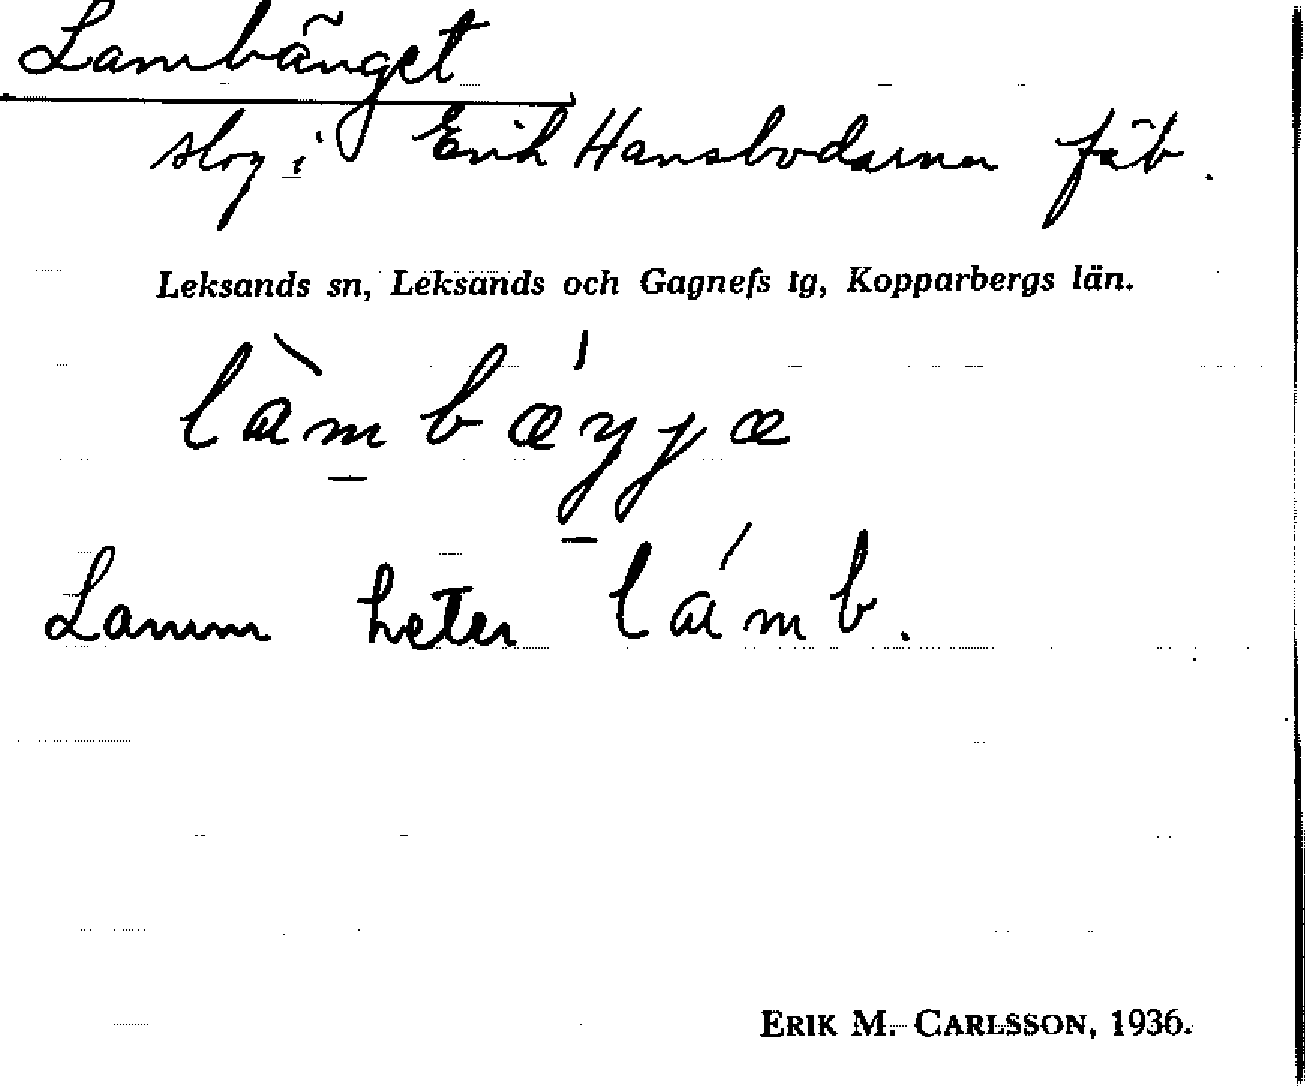 Lambänget
slog i Erik Hansbodarna fäb.
Leksands sn, Leksands och Gagnefs tg, Kopparbergs län.
làmbǽŋjæ
Lamm heter lámb.
ERIK M. CARLSSON, 1936.